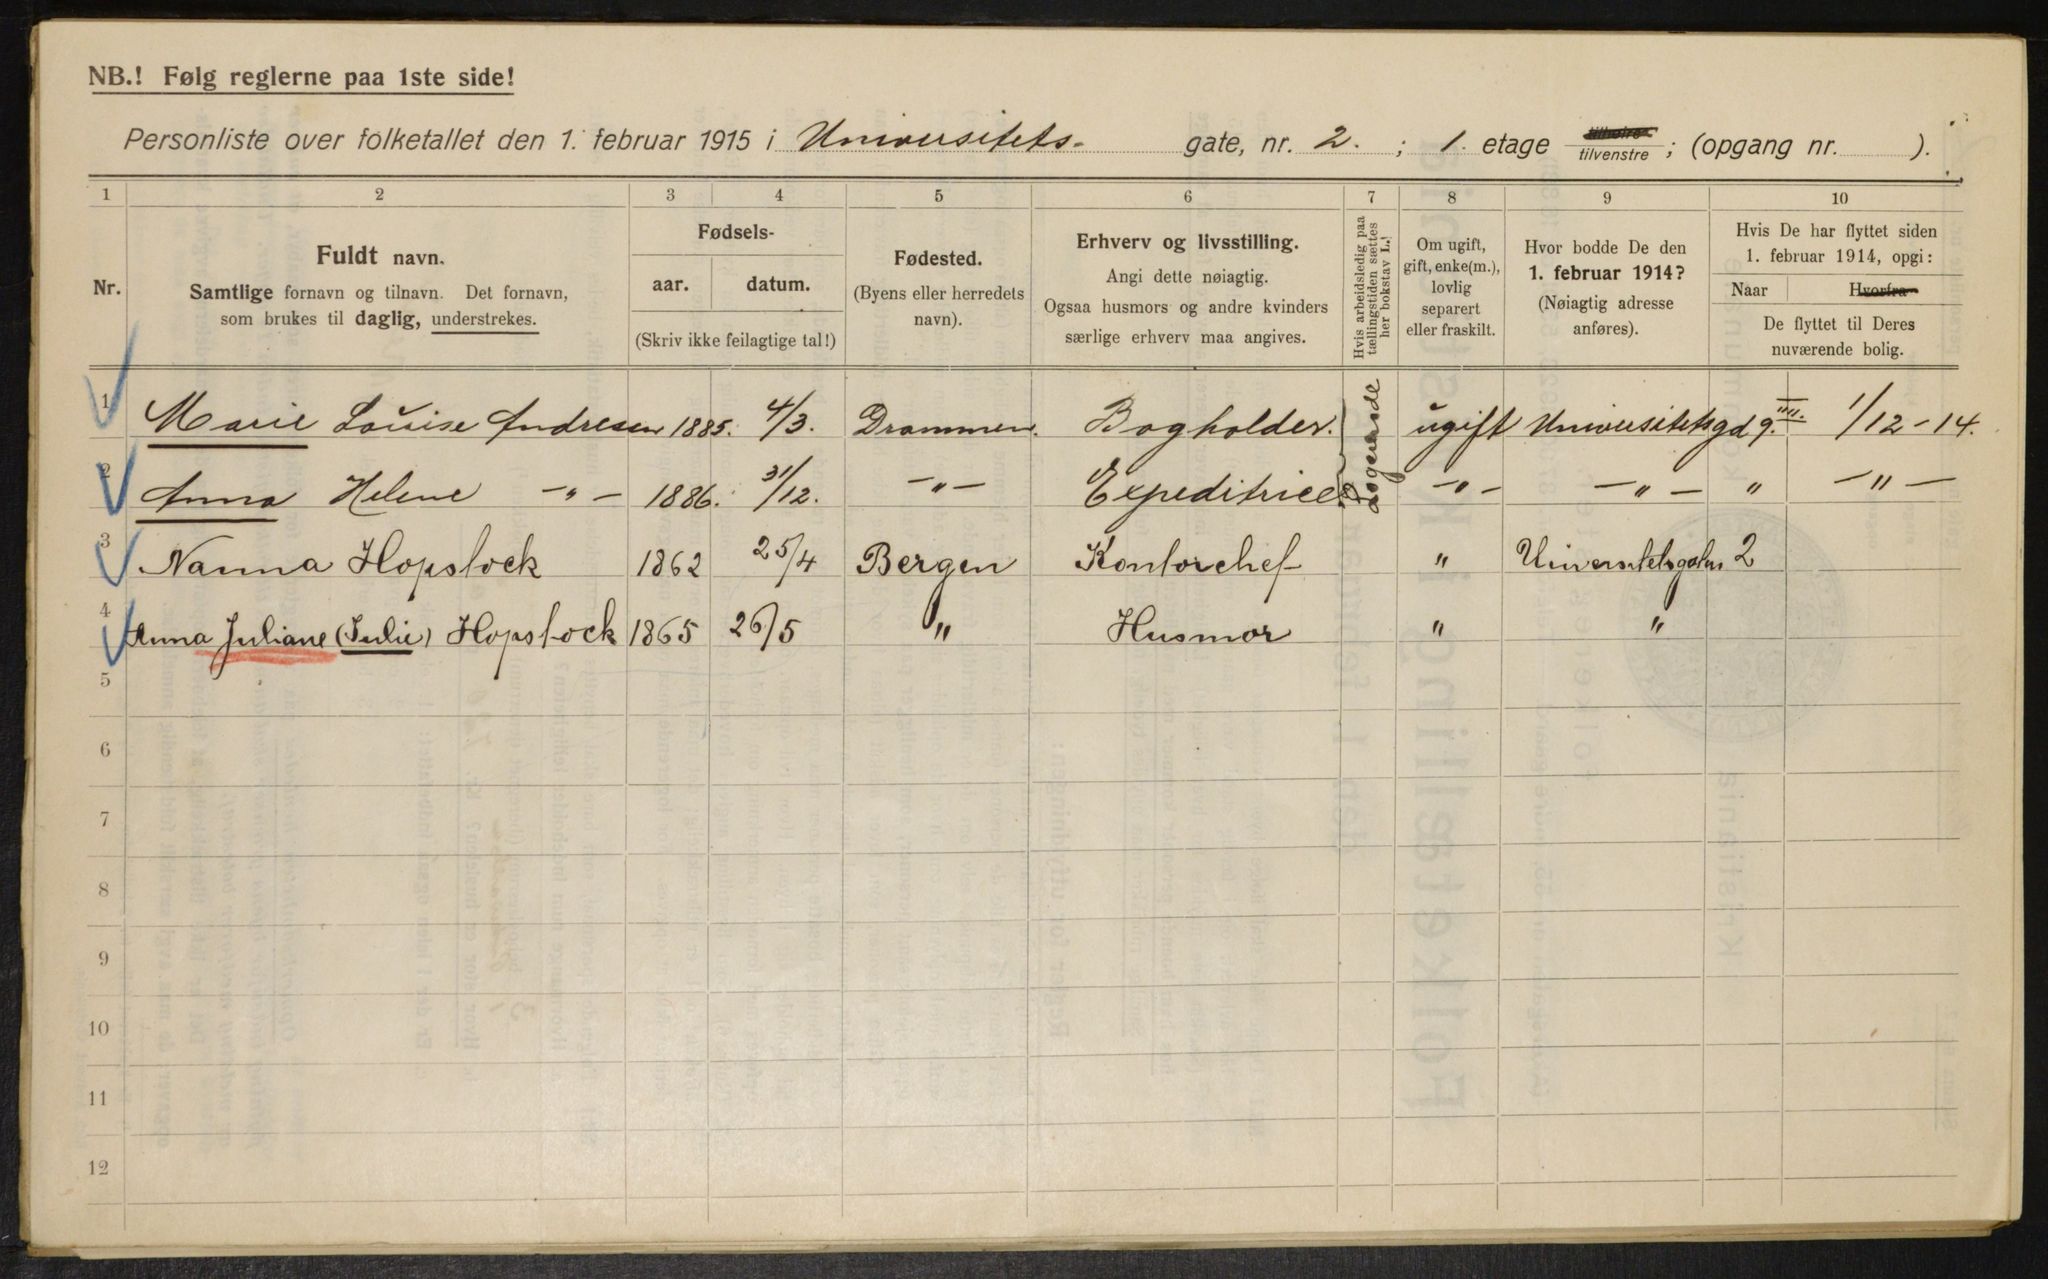 NB.! Følg reglerne paa 1ste side!
Personliste over folketallet den 1. februar 1915 i Universitets- gate, nr. 2. ; 1. etage tilhøire tilvenstre ; (opgang nr. ).
1 2 3 4 5 6 7 8 9 10
Nr.
Fuldt navn.
Samtlige fornavn og tilnavn. Det fornavn,
som brukes til daglig, understrekes.
Fødsels-
aar. datum.
(Skriv ikke feilagtige tal!)
Fødested.
(Byens eller herredets
navn).
Erhverv og livsstilling.
Angi dette nøiagtig.
Ogsaa husmors og andre kvinders
særlige erhverv maa angives.
Hvis arbeidsledig paa
tællingstiden sættes
her bokstav L.!
Om ugift,
gift, enke(m.),
lovlig
separert
eller fraskilt.
Hvor bodde De den
1. februar 1914?
(Nøiagtig adresse
anføres).
Hvis De har flyttet siden
1. februar 1914, opgi:
Naar Hvorfra
De flyttet til Deres
nuværende bolig.
1 Marie Louise Andresen 1885. 4/3. Drammen. Bogholder. ugift Universitetsgd 9. 1/12 - 14.
2 Anna Helene -"- 1886. 31/12. -"- Expeditrice -"- -"- " -"-
3 Nanna Hopstock 1862 25/4 Bergen Kontorchef " Universitetsgaten 2
4 Anna Juliane (Julie) Hopstock 1865 26/5 " Husmor " "
5
6
7
8
9
10
11
12